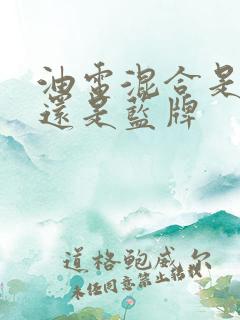 油電混合是
還是藍牌
道格鲍威尔
未任同意禁止转载